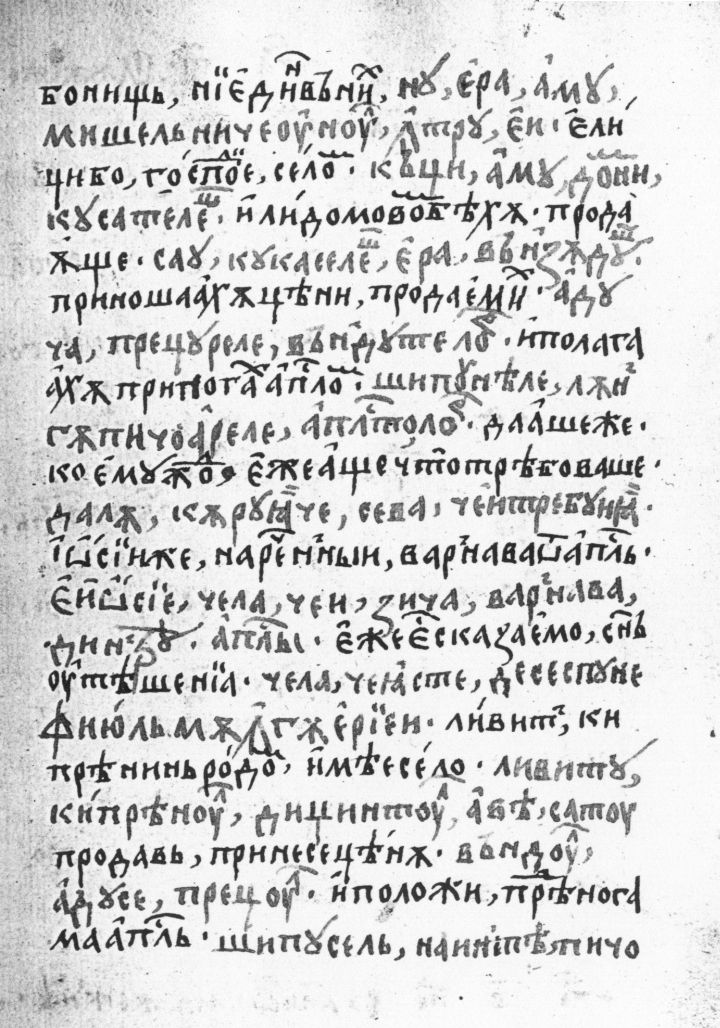 бонишь, нїедин въних, ну, ера, аму,
мишельничеоуноул, лтру, еи · ели
цибо, господїе, селом · къци, аму, домни,
кусателещ · илидомовобѣхѫ · прода
ѫще · сау, кукаселещ, ера, вънзѫдущ ·
приношаахѫцѣни, продаемїих · аду
ча, прецуреле, въндутелѡр · иполага
ахѫприногахаплом · шипунѣле, лѫн
гѫпичоареле, апⷭ҇толѡр · даашеже ·
комужⷣо, ежеащечтотрѣбоваше ·
далѫ, кѫруꙗче, сева, чеитребуиꙗ ·
їѡсїиже, нареченныи, варнаваѿапль ·
еиїѡсїе, чела, чеи, зича, варнава,
динзꙋ · аплы · ежеестсказаемо, сн҃ъ
оутѣшенїа · чела, чеꙗсте, десеспуне
фиюльмѫнгѫерїеи · ливит, ки
прѣниньродом, имѣесело · ливиту,
кипрѣноул, дищинтоул, авѣ, сатоу
продавь, принесецѣнѫ · въндоул,
адусе, прецоул · иположи, прѣнога
маапль · шипусель, наинтѣ, пичо